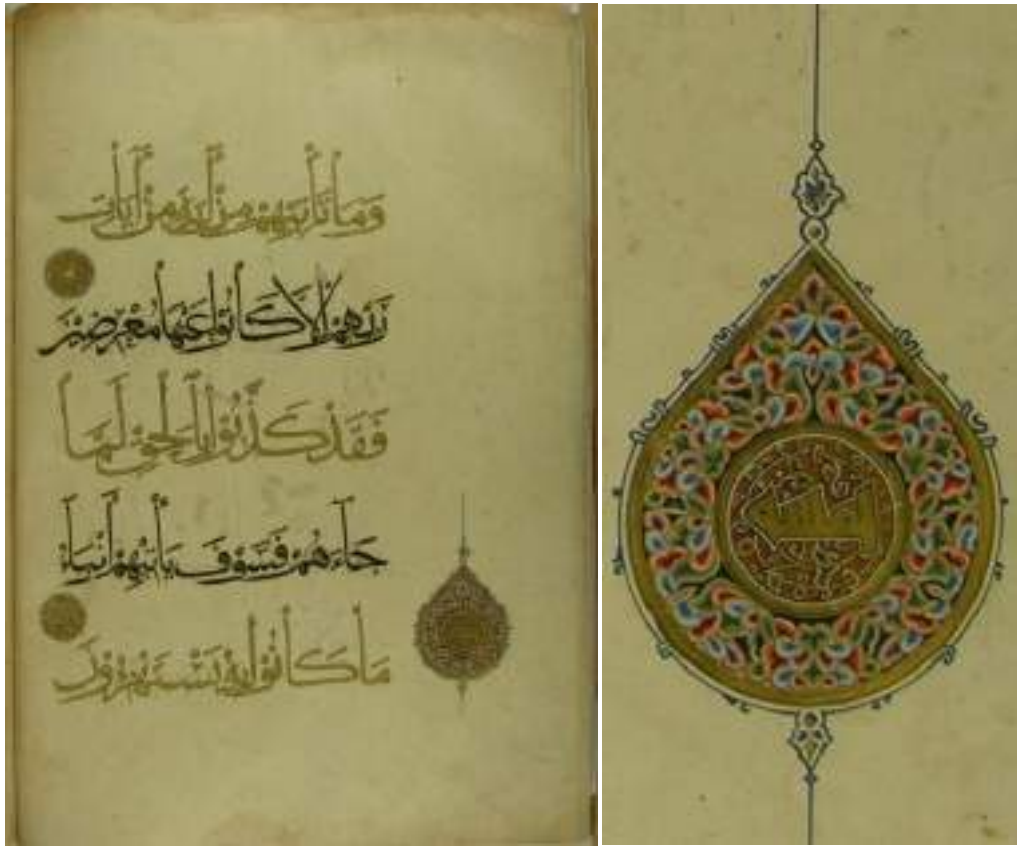 وَمَا تَأْتِيهِمْ مِنْ آيَةٍ مِنْ آيَاتِ
رَبِّهِمْ إِلَّا كَانُوا عَنْهَا مُعْرِضِينَ
فَقَدْ كَذَّبُوا بِالْحَقِّ لَمَّا
جَاءَهُمْ فَسَوْفَ يَأْتِيهِمْ أَنْبَاءُ
مَا كَانُوا بِهِ يَسْتَهْزِءُونَ